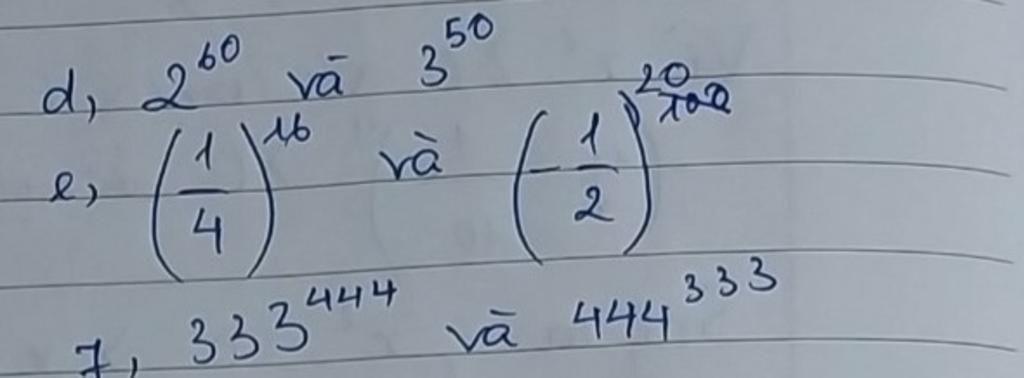 d, 2^60 và 3^50
e, (1/4)^16 và (-1/2)^20
7, 333^444 và 444^333